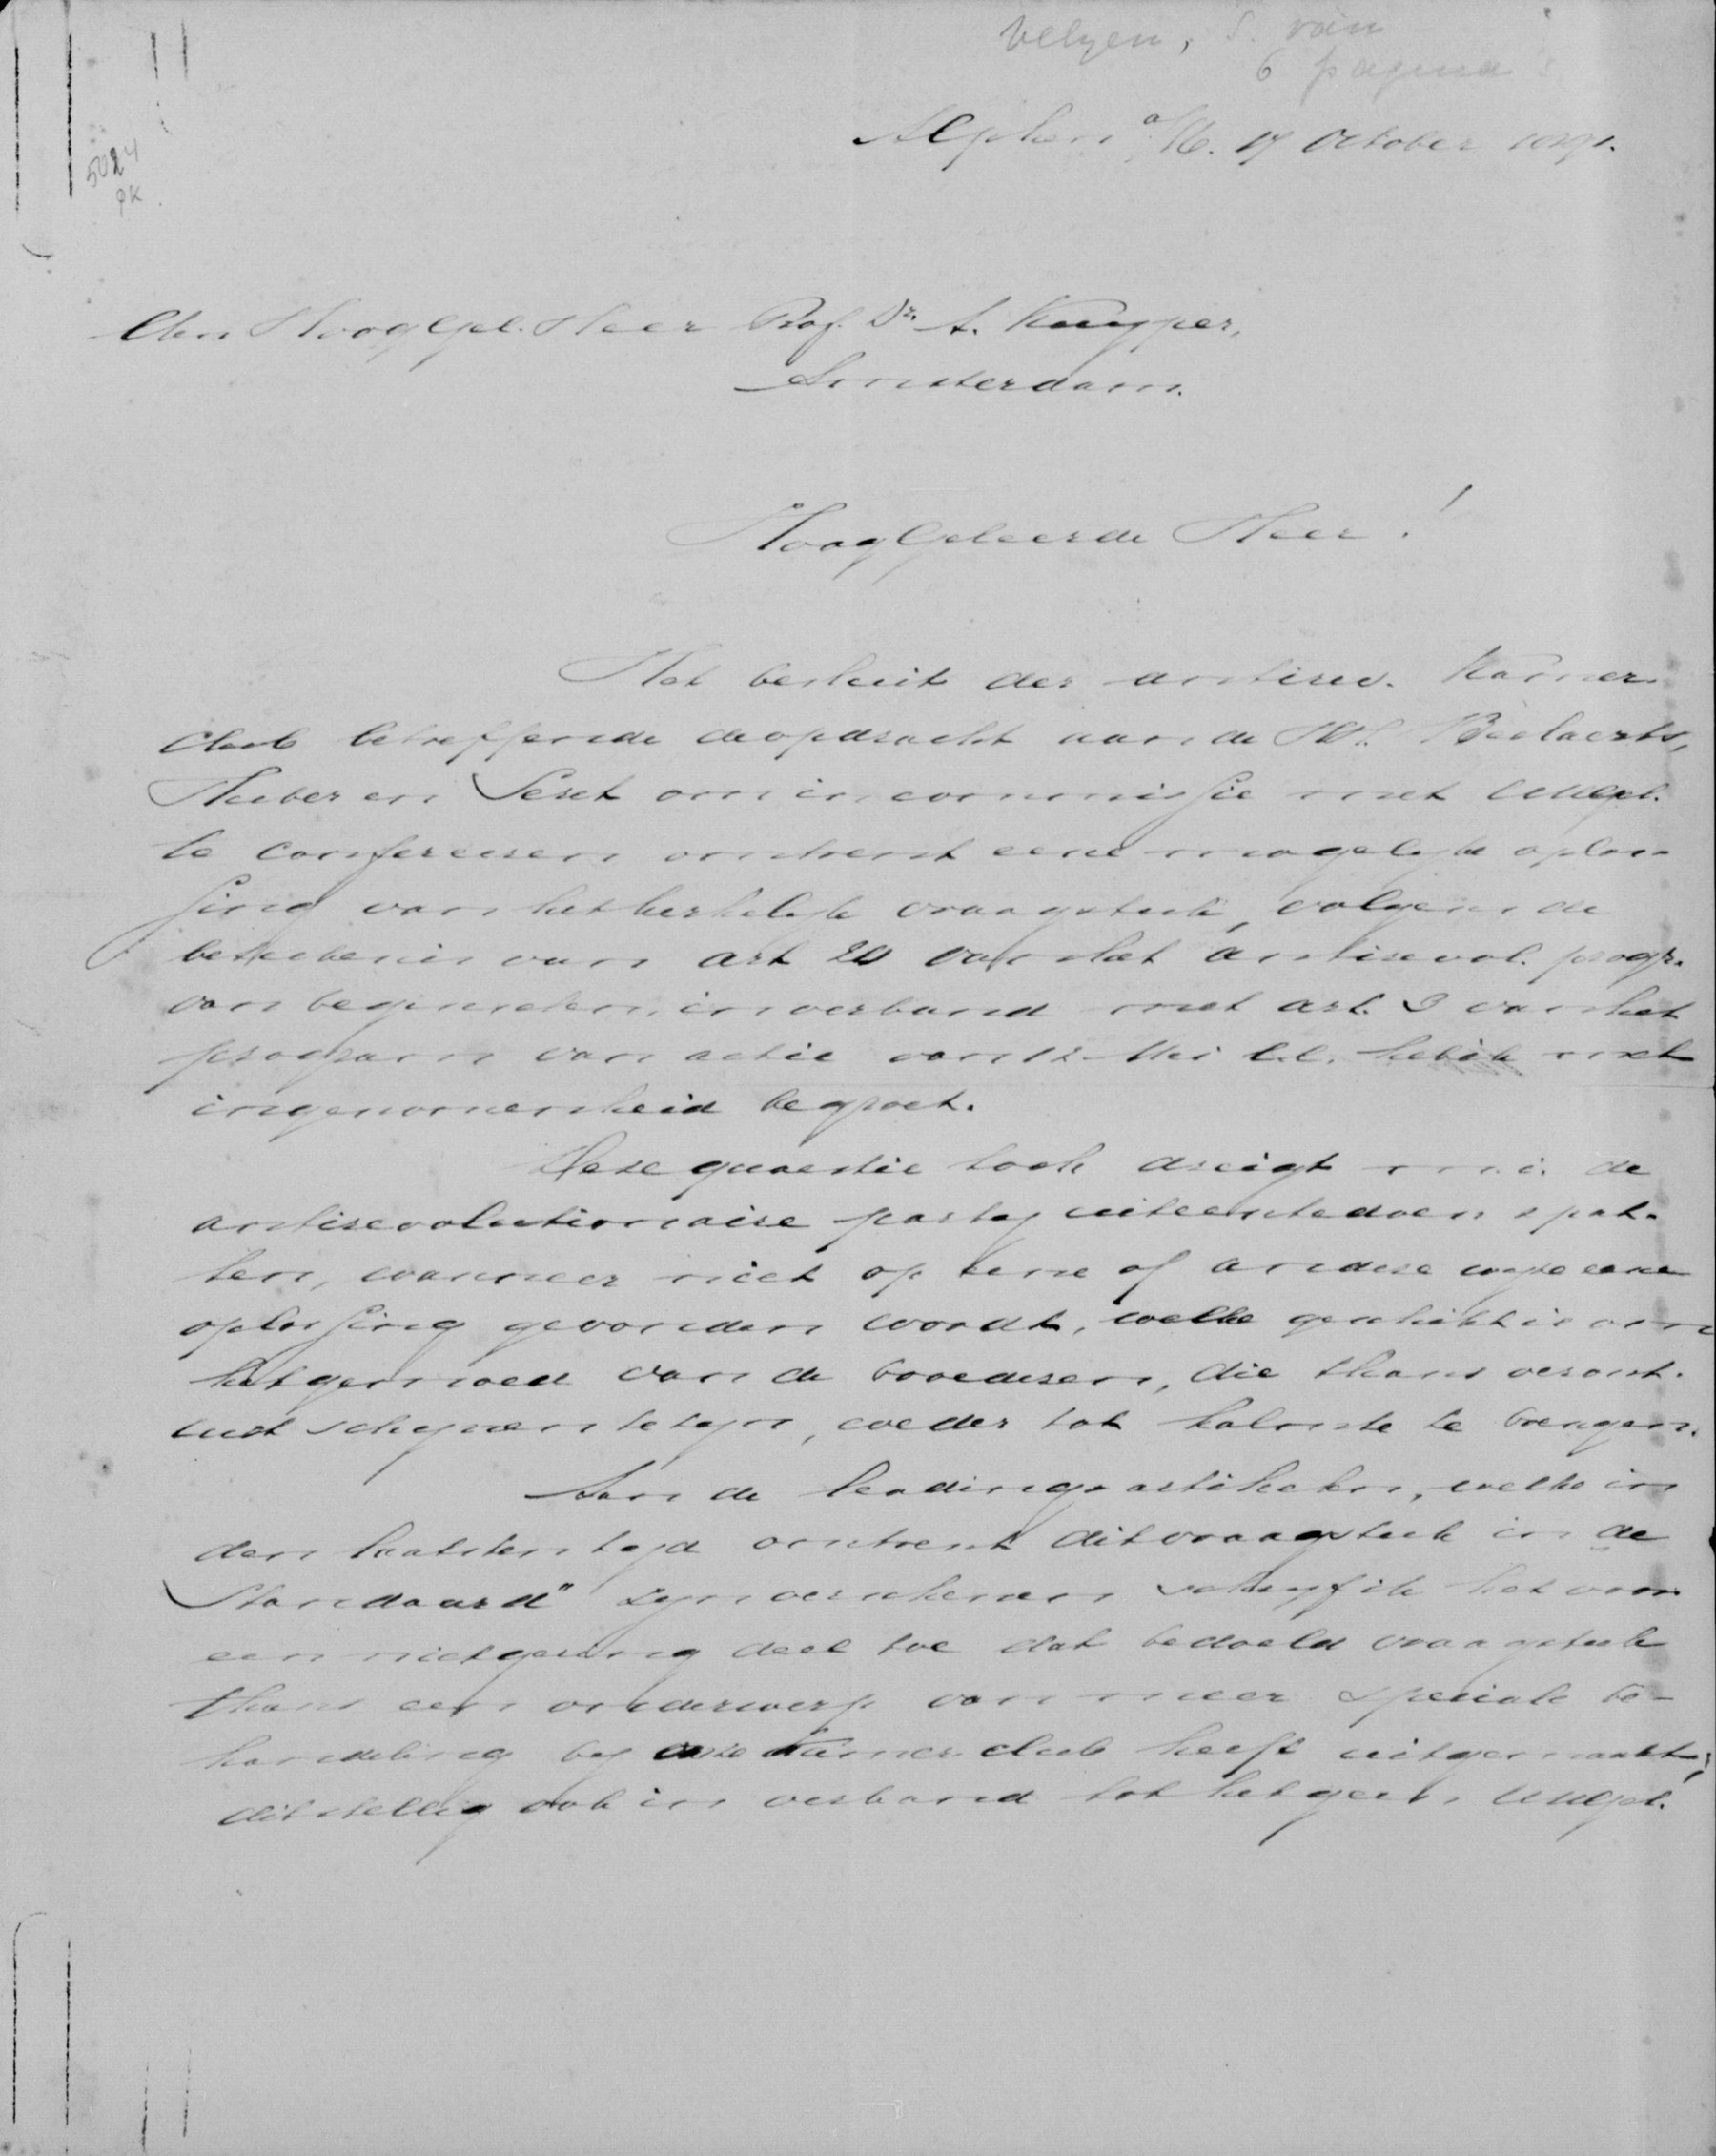 Velzen, S. van
6 pagina's
5024
PK.
Alphen a/R. 17 October 1891.
Den HoogGel. Heer Prof. Dr. A. Kuyper,
Amsterdam.
HoogGeleerde Heer!
Het besluit der antirev. Kamer-
club betreffende de opdracht aan de HH. Beelaerts,
Huber en Seret om in commissie met UHGel.
te confereeren omtrent eene mogelijke oplos-
sing van het kerkelijk vraagstuk, volgens de
beteekenis van art 20 van het antirevol. progr.
van beginselen, in verband met art. 3 van het
program van actie van 12 Mei l.l. heb ik met
ingenomenheid begroet.
Deze quaestie toch dreigt m.i. de
antirevolutionaire partij uiteen te doen spat-
ten, wanneer niet op eene of andere wijze eene
oplossing gevonden wordt, welke geschikt is om
het gemoed van de broederen, die thans veront-
rust schijnen te zijn, weder tot kalmte te brengen.
Aan de leadingsartikelen, welke in
den laatsten tijd omtrent dit vraagstuk in de
Standaard" zijn verschenen schrijf ik het voor
een niet gering deel toe dat bedoeld vraagstuk
thans een onderwerp van meer speciale be-
handeling bij onze Kamerclub heeft uitgemaakt;
dit stellig ook in verband tot hetgeen UHGel.